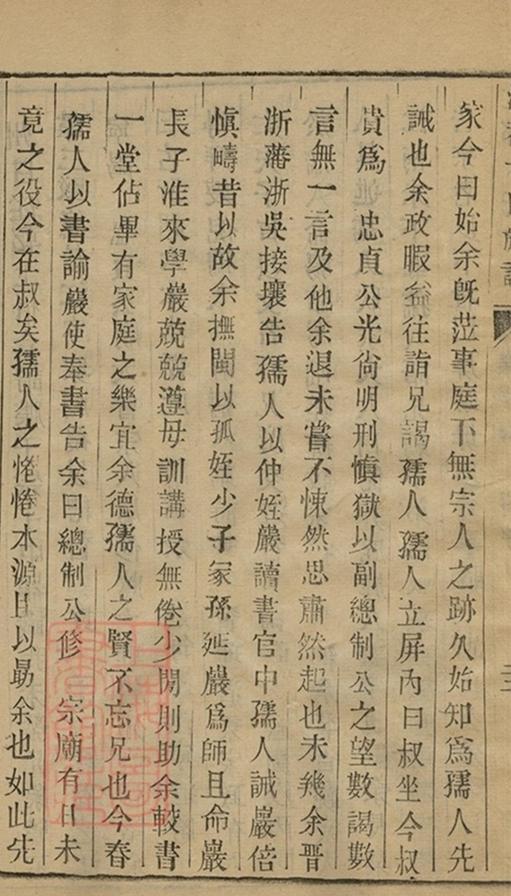 家今日始余旣蒞事庭下無宗人之跡久始知爲孺人先
誡也余政暇益往詣兄謁孺人孺人立屏內曰叔坐今叔
貴爲 忠貞公光尙明刑愼獄以副總制公之望數謁數
言無一言及他余退未嘗不悚然思肅然起也未幾余晉
浙藩浙吳接壤告孺人以仲姪巖讀書官中孺人誡巖倍
愼疇昔以故余撫閩以孤姪少子冢孫延巖爲師且命巖
長子淮來學巖兢兢遵母訓講授無倦少閒則助余較書
一堂佔畢有家庭之樂宜余德孺人之賢不忘兄也今春
孺人以書諭巖使奉書告余曰總制公修 宗廟有日未
竟之役今在叔矣孺人之惓惓本源日以勗余也如此先